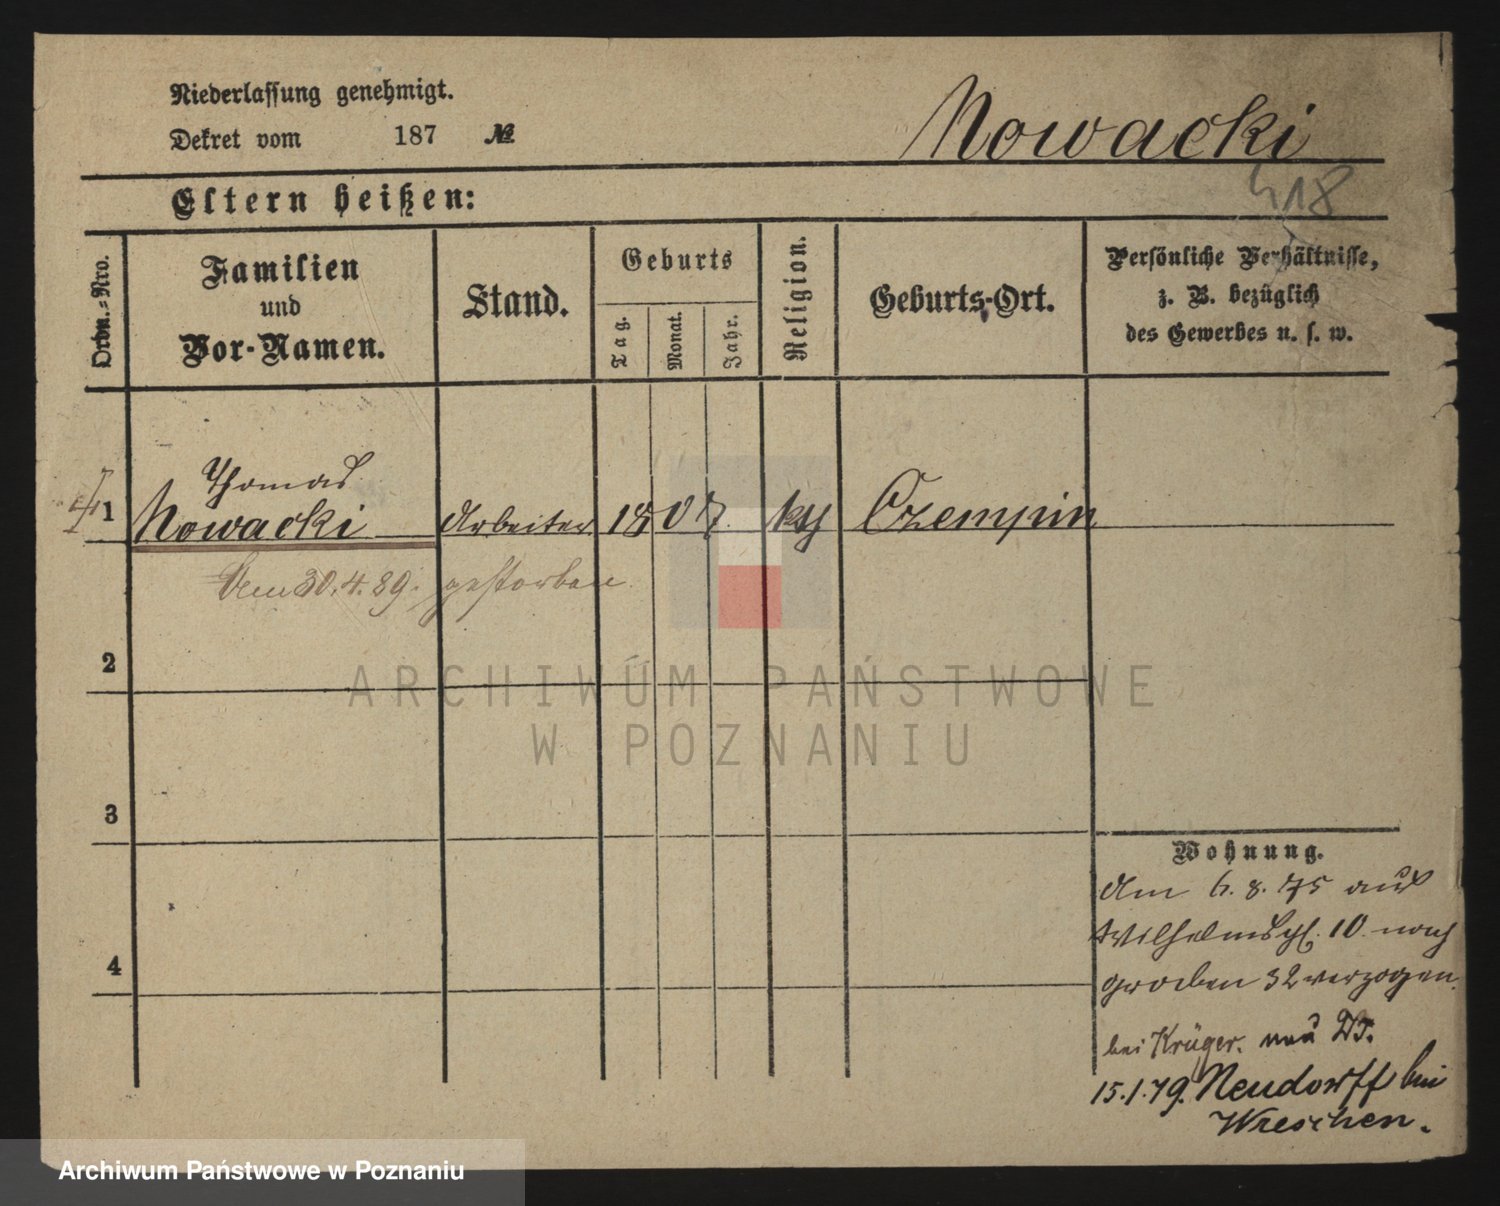 Niederlassung genehmigt.
Dekret vom 187 №
Nowacki
418
Eltern heißen:
Ordn.-Nro.
Familien
und
Vor-Namen.
Stand.
Geburts
Tag.
Monat.
Jahr.
Religion.
Geburts-Ort.
Persönliche Verhältnisse,
z. B. bezüglich
des Gewerbes u. s. w.
Thomas
1 Nowacki Arbeiter 1807. Czempin
Am 30.4.89. gestorben
2
ARCHIWUM PAŃSTWOWE
W POZNANIU
3
Wohnung.
Am 6.8.75 aus
Wilhelmspl. 10 nach
Graben 32 verzogen.
4
bei Krüger.
15.1.79. Neudorff bei
Wreschen.
Archiwum Państwowe w Poznaniu